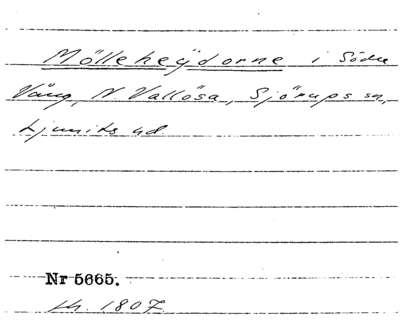 Möllehejdorne i Södra
Vång, N. Vallösa, Sjörups sn,
Ljunits hd
Nr 5665.
kk. 1807.